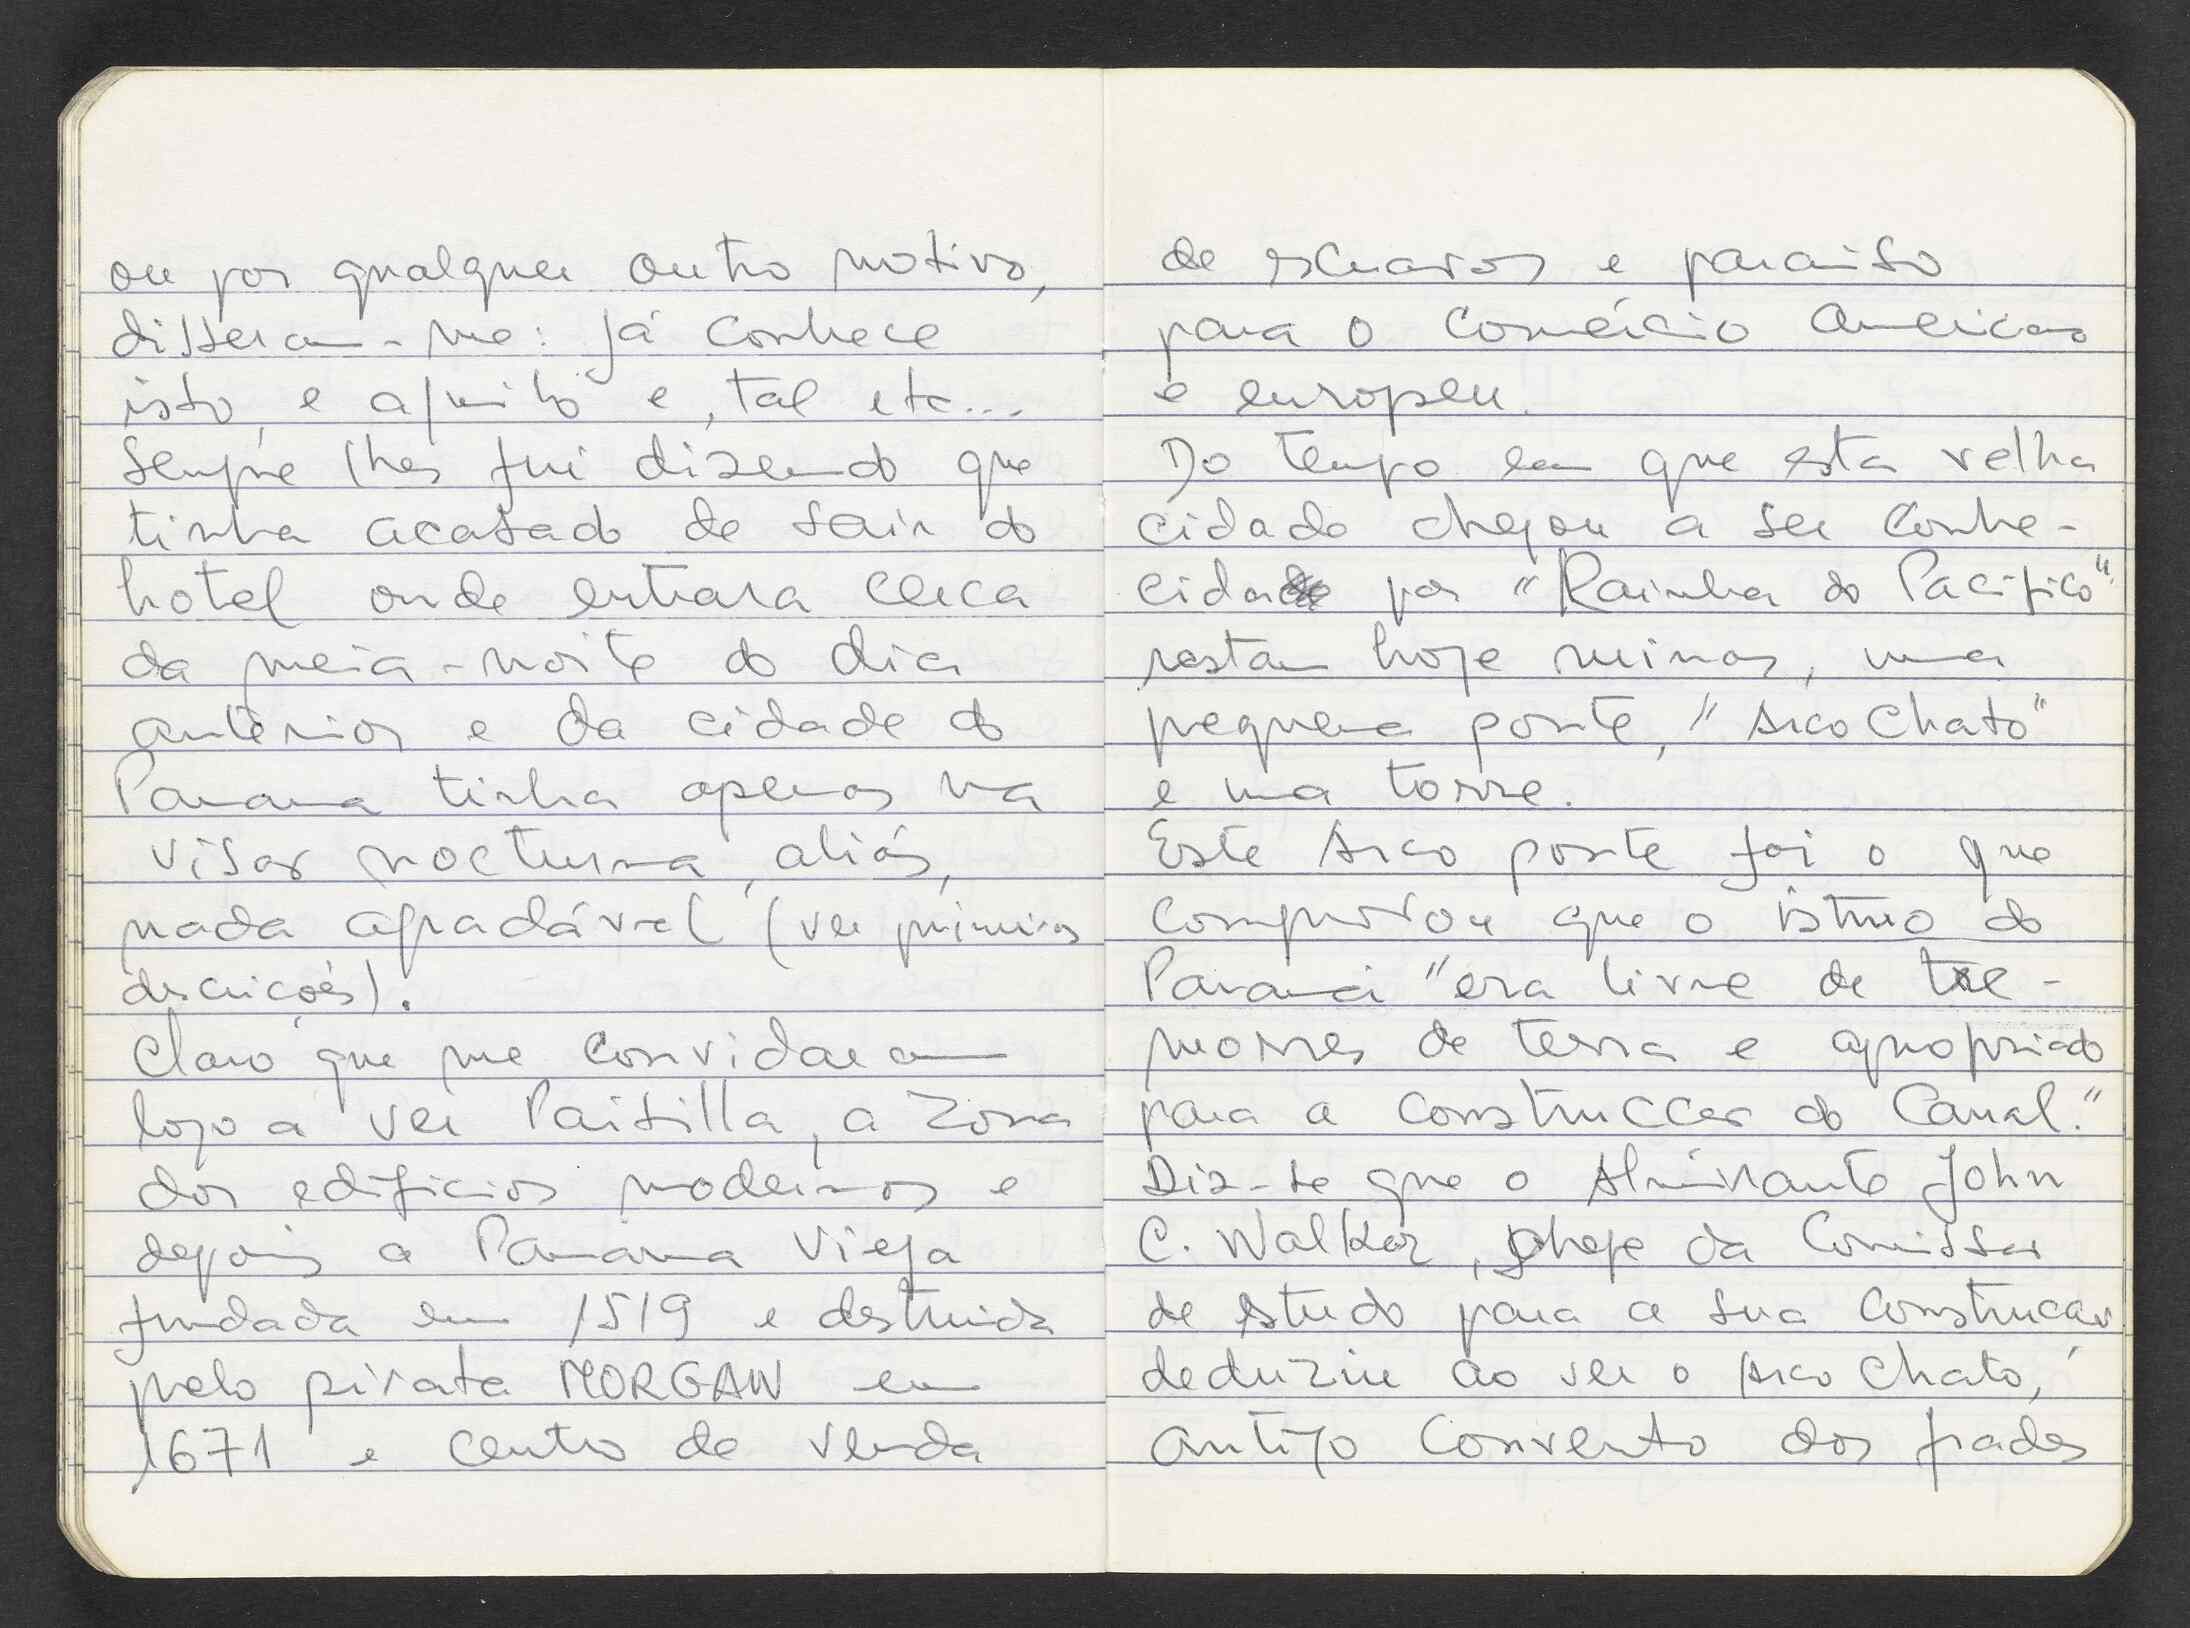 ou por qualquer outro motivo,
disseram-me: já conhece
isto, e aquilo e, tal etc...
Sempre lhes fui dizendo que
tinha acabado de sair do
hotel onde entrara cerca
da meia-noite do dia
anterior e da cidade do
Panama tinha apenas uma
visão nocturna, aliás,
nada agradável (ver primeiras
descrições).
Claro que me convidaram
logo a ver Paitilla, a zona
dos edificios modernos e
depois a Panama Vieja
fundada em 1519 e destruida
pelo pirata MORGAN em
1671 e centro de venda
de escravos e paraiso
para o comércio americano
e europeu.
Do tempo em que esta velha
cidade chegou a ser conhe-
cida por "Rainha do Pacifico"
restam hoje ruinas, uma
pequena ponte, "Arco Chato"
e uma torre.
Este Arco ponte foi o que
comprovou que o istmo do
Panamá "era livre de tre-
mores de terra e apropriado
para a construccão do Canal."
Diz-se que o Almirante John
C. Walker, chefe da Comissão
de estudo para a sua construcão
deduziu ao ver o Arco Chato,
antigo Convento dos frades